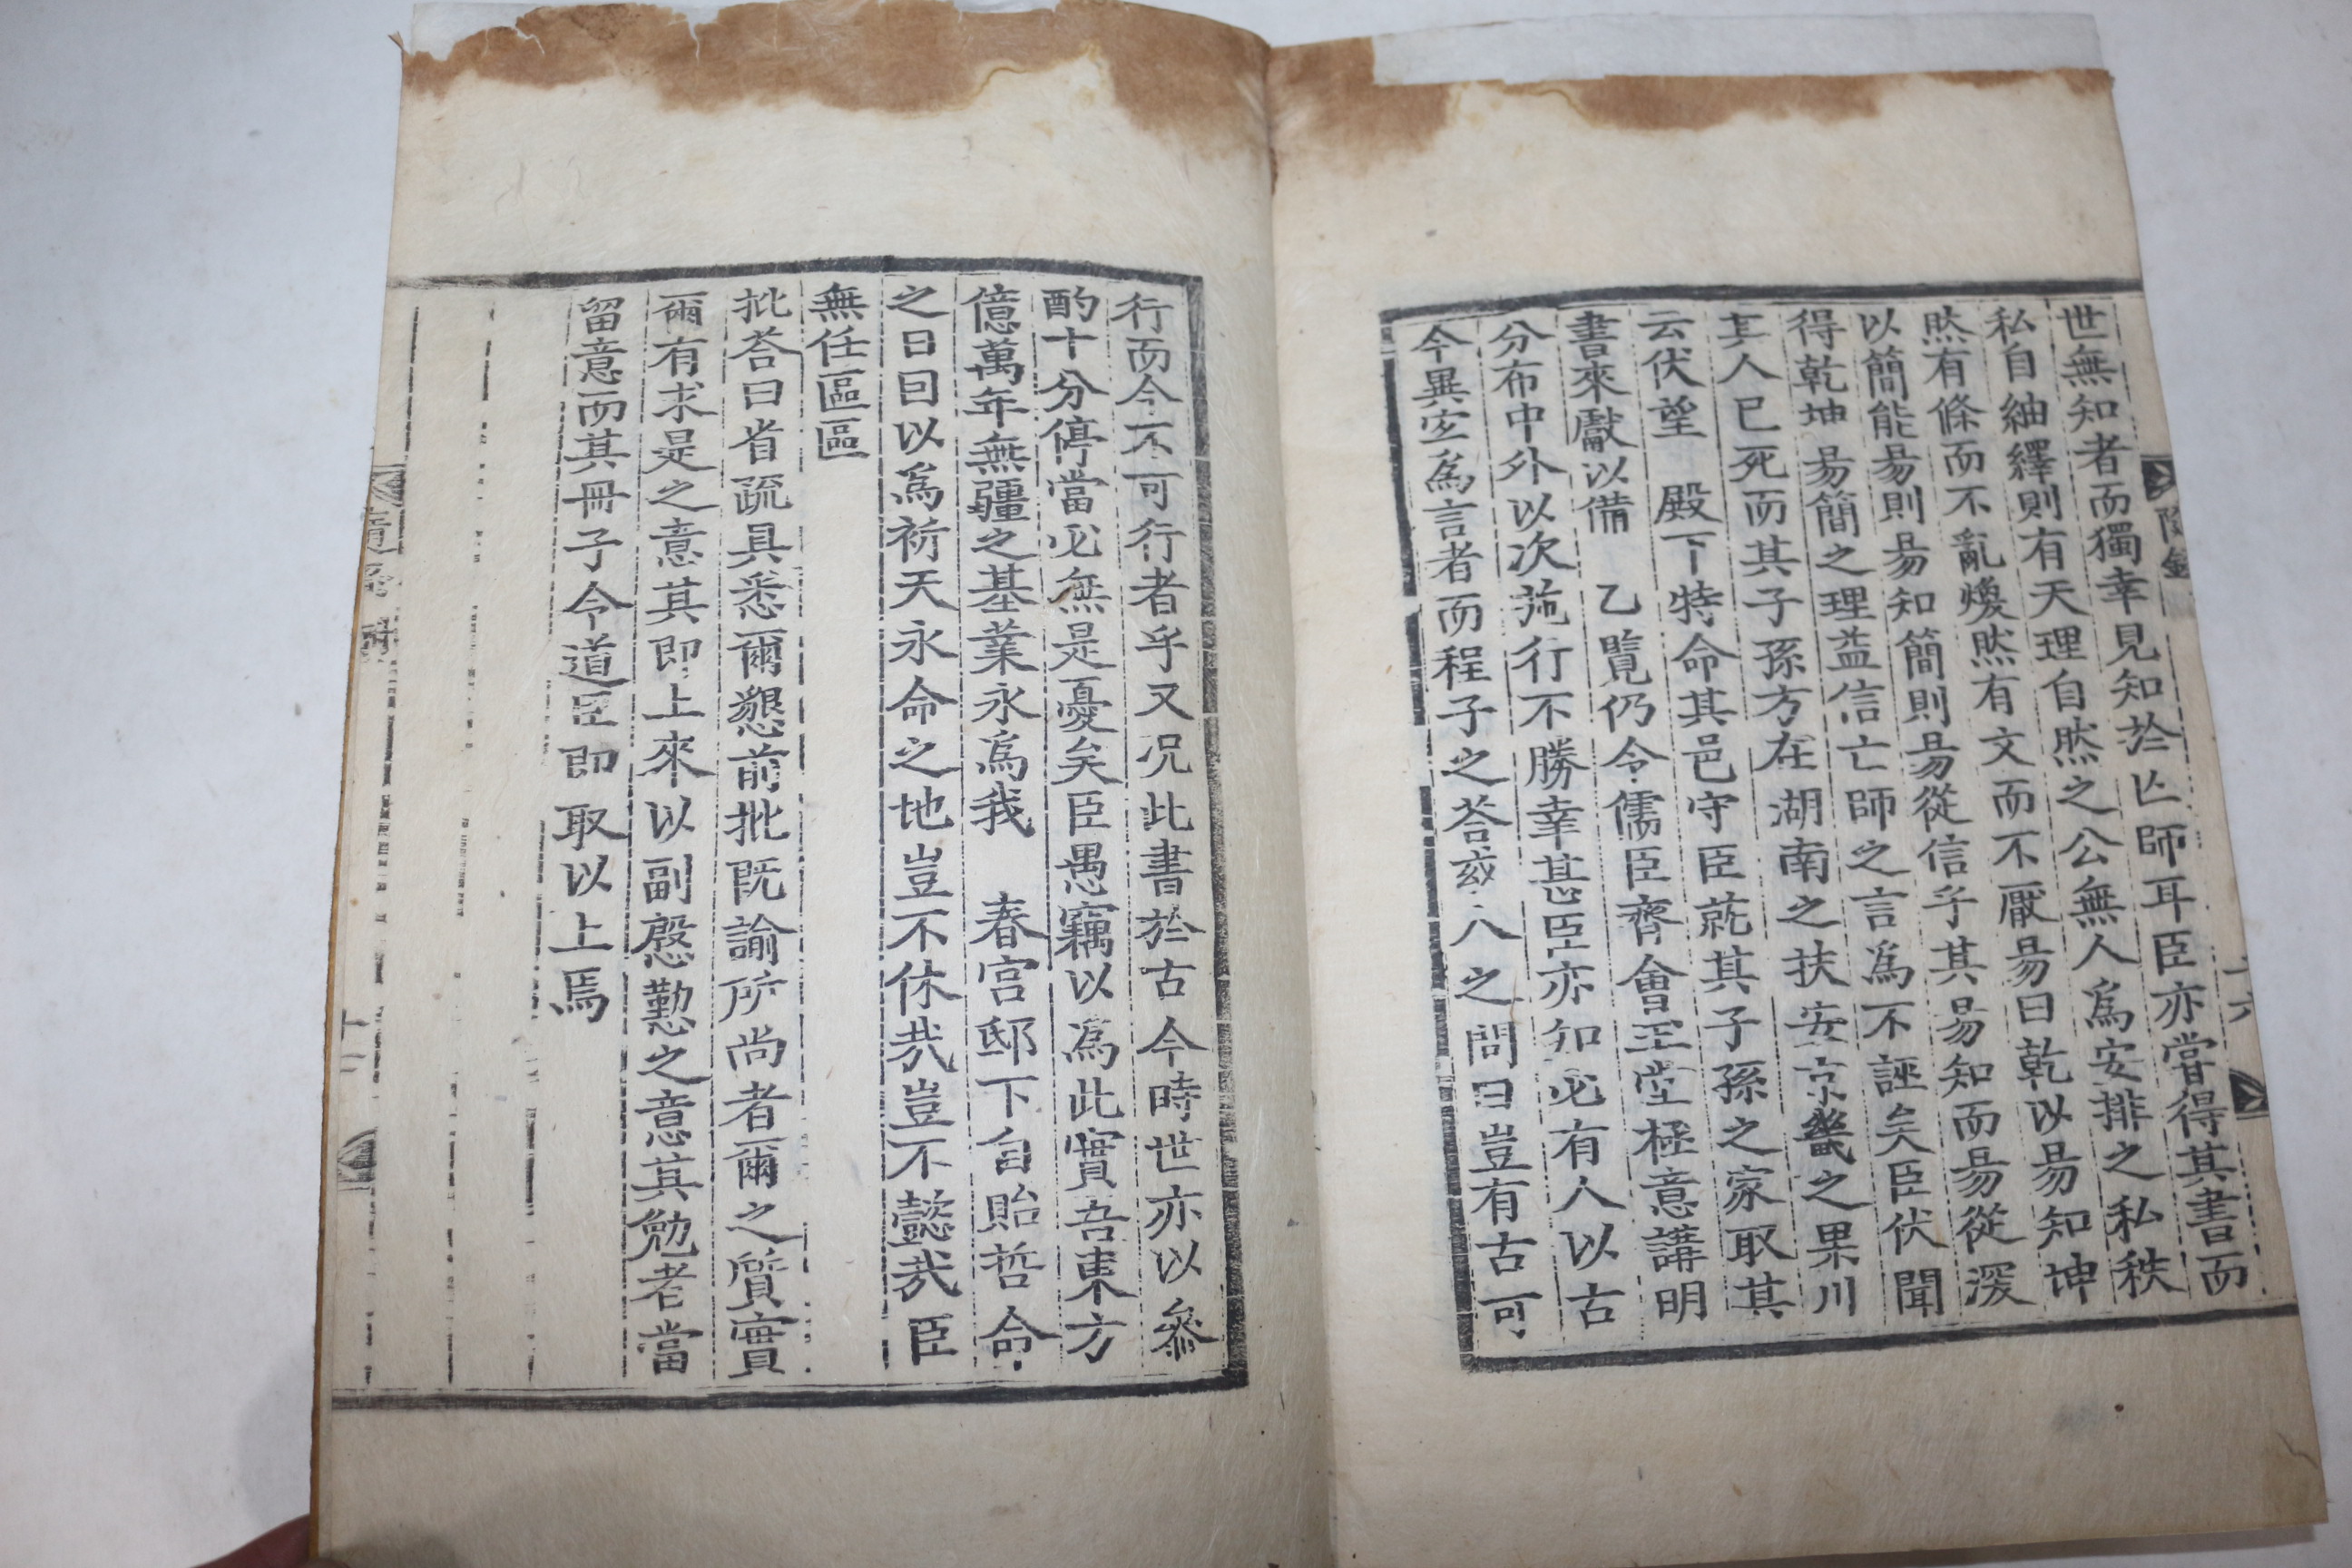 隨錄
世無知者而獨幸見知於亡師耳臣亦嘗得其書而
私自紬繹則有天理自然之公無人爲安排之私秩
然有條而不亂煥然有文而不厭易曰乾以易知坤
以簡能易則易知簡則易從信乎其易知而易從深
得乾坤易簡之理益信亡師之言爲不誣矣臣伏聞
其人已死而其子孫方在湖南之扶安京畿之果川
云伏望 殿下特命其邑守臣就其子孫之家取其
書來獻以備 乙覽仍令儒臣齊會玉堂極意講明
分布中外以次施行不勝幸甚臣亦知必有人以古
今異宜爲言者而程子之答或人之問曰豈有古可
行而今不可行者乎又况此書於古今時世亦以參
酌十分停當必無是憂矣臣愚竊以爲此實吾東方
億萬年無疆之基業永爲我 春宮邸下自貽哲命
之日曰以爲祈天永命之地豈不休哉豈不懿哉臣
無任區區
批答曰省疏具悉爾懇前批旣諭所尙者爾之質實
爾有求是之意其卽上來以副慇懃之意其勉老當
留意而其冊子令道臣卽取以上焉